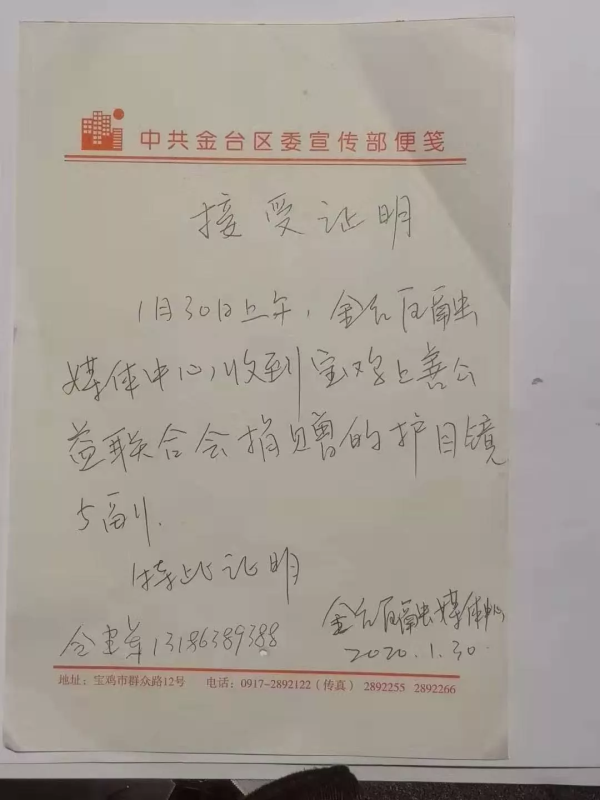 中共金台区委宣传部便笺
接受证明
1月30日上午,金台区融
媒体中心收到宝鸡上善公
益联合会捐赠的护目镜
5副.
特此证明
金台区融媒体中心
13186389388
2020.1.30
地址:宝鸡市群众路12号 电话:0917-2892122(传真) 2892255 2892266